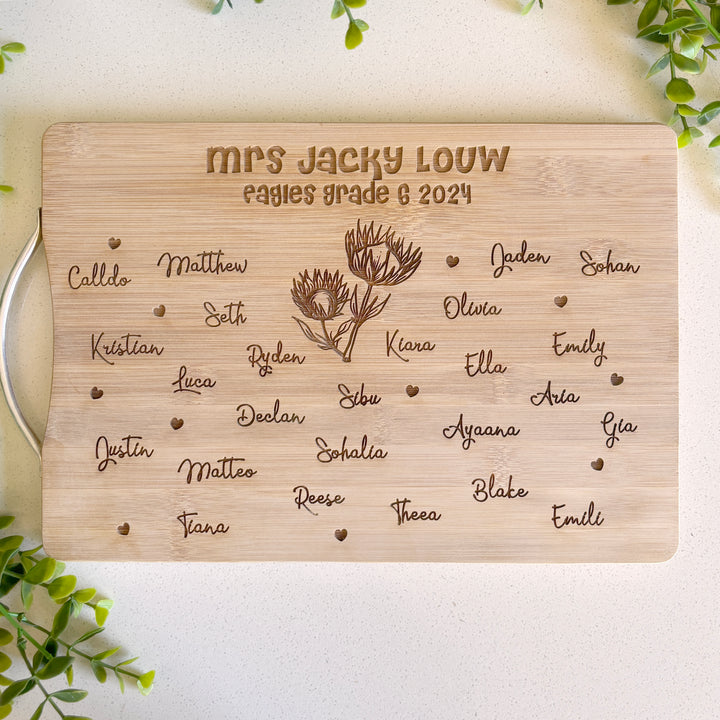 Mrs Jacky Louw
Eagles Grade 6 2024
Calldo Matthew Jaden Sohan
Seth Olivia
Kristian Ryden Kiara Ella Emily
Luca Sibu Aria
Declan Ayaana Gia
Justin Matteo Sohalia
Reese Theea Blake
Tiana Emili